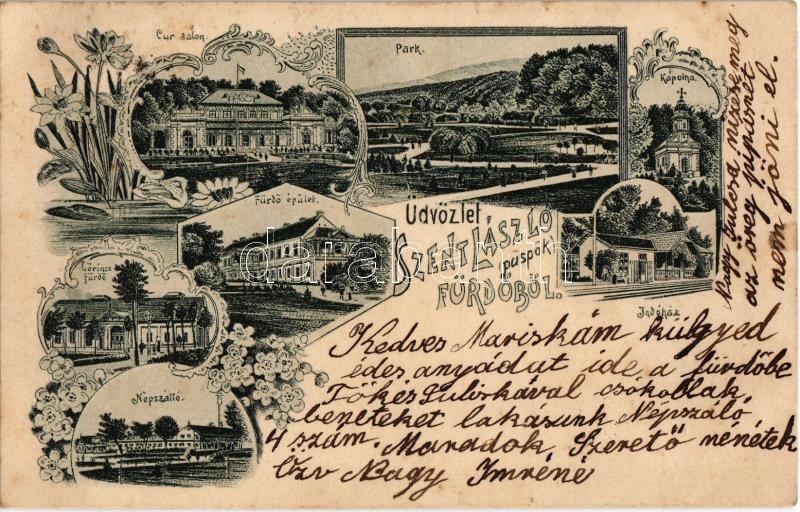 Cur salon.
Park.
Kápolna.
Fürdő épület.
Üdvözlet
SZENT LÁSZLÓ
püspök
FÜRDŐBŐL.
Lőrincz
fürdő
Indóház
Népszálló.
Kedves Mariskám küłgyed
édes anyádat ide a fürdőbe
Tőkés Juliskával csókollak
beneteket lakásunk Népszáló
4 szám. Maradok Szerető nénétek
Özv Nagy Imréné
Nagy
az öreg
nem jöni el.
darabanth